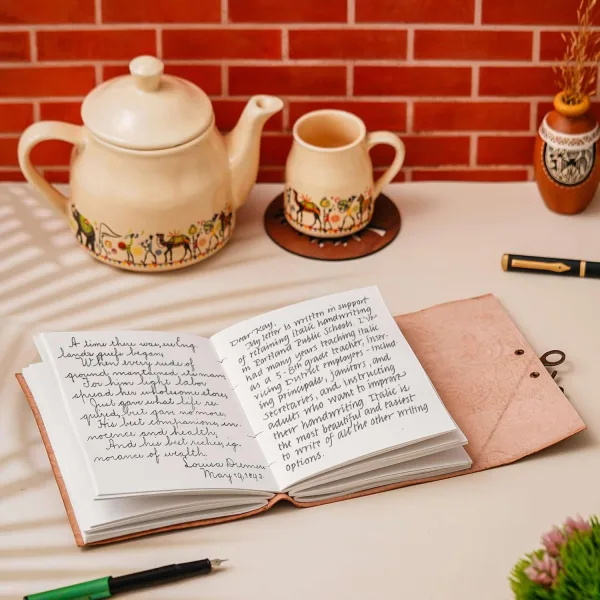 A time there was, ere Eng
lands griefs began,
When every rood of
ground maintained its man;
For him light labor
spread her wholesome store,
Just gave what life re
quired, but gave no more.
His best companions, in-
nocence and health;
And his best riches, ig-
norance of wealth.
Louisa
May 19, 1893.
Dear Kay,
My letter is written in support
of retaining italic handwriting
in Portland Public Schools. I've
had many years teaching italic
as a 5-8th grade teacher, inser-
vicing District employers - includ
ing principals, janitors, and
secretaries, and instructing
adults who want to improve
their handwriting. Italic is
the most beautiful and easiest
to write of all the other writing
options.